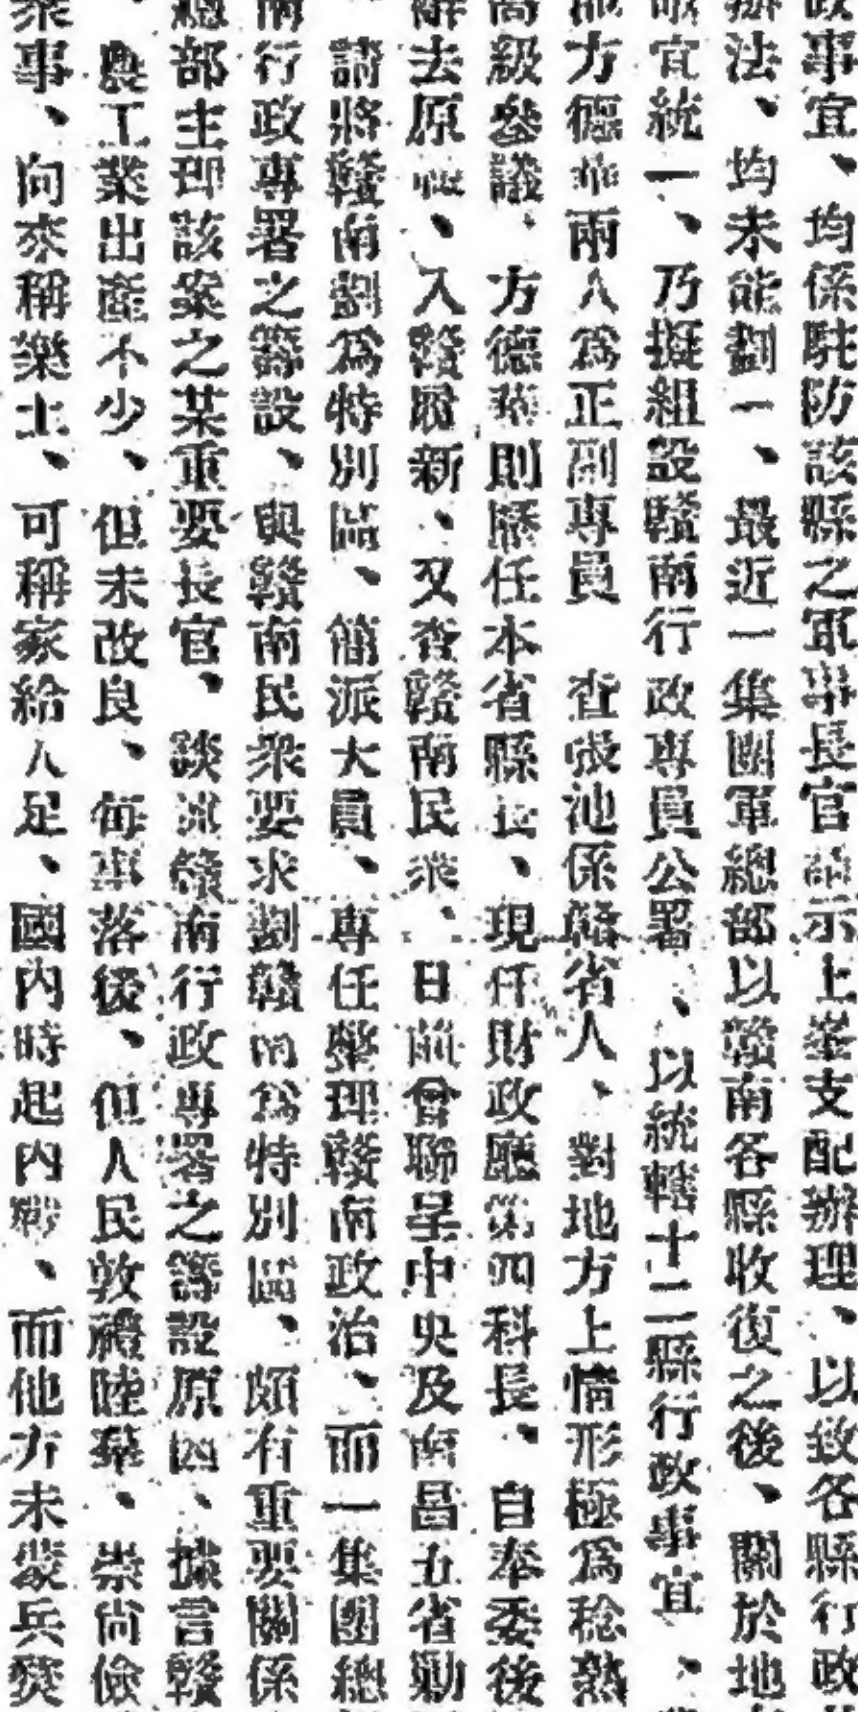 政事宜、均係駐防該縣之軍事長官請示上峯支配辦理、以致各縣行政
辦法、均未能劃一、最近一集團軍總部以贛南各縣收復之後、關於地
政宜統一、乃擬組設贛南行政專員公署、以統轄十二縣行政事宜、
池方德華兩人爲正副專員 查張池係贛省人、對地方上情形極爲稔熟
高級參議、方德華則歷任本省縣長、現任財政廳第四科長、自奉委後
辭去原職、入贛履新、又查贛南民衆、日前曾聯呈中央及南昌五省勦
請將贛南劃爲特別區、簡派大員、專任整理贛南政治、而一集團總
南行政專署之籌設、與贛南民衆要求劃贛南爲特別區、頗有重要關係
總部主理該案之某重要長官、談述贛南行政專署之籌設原因、據言贛
、農工業出產不少、但未改良、每事落後、但人民敦禮陸鄰、崇尚儉
樂事、向來稱樂土、可稱家給人足、國內時起內戰、而他方未嘗兵燹